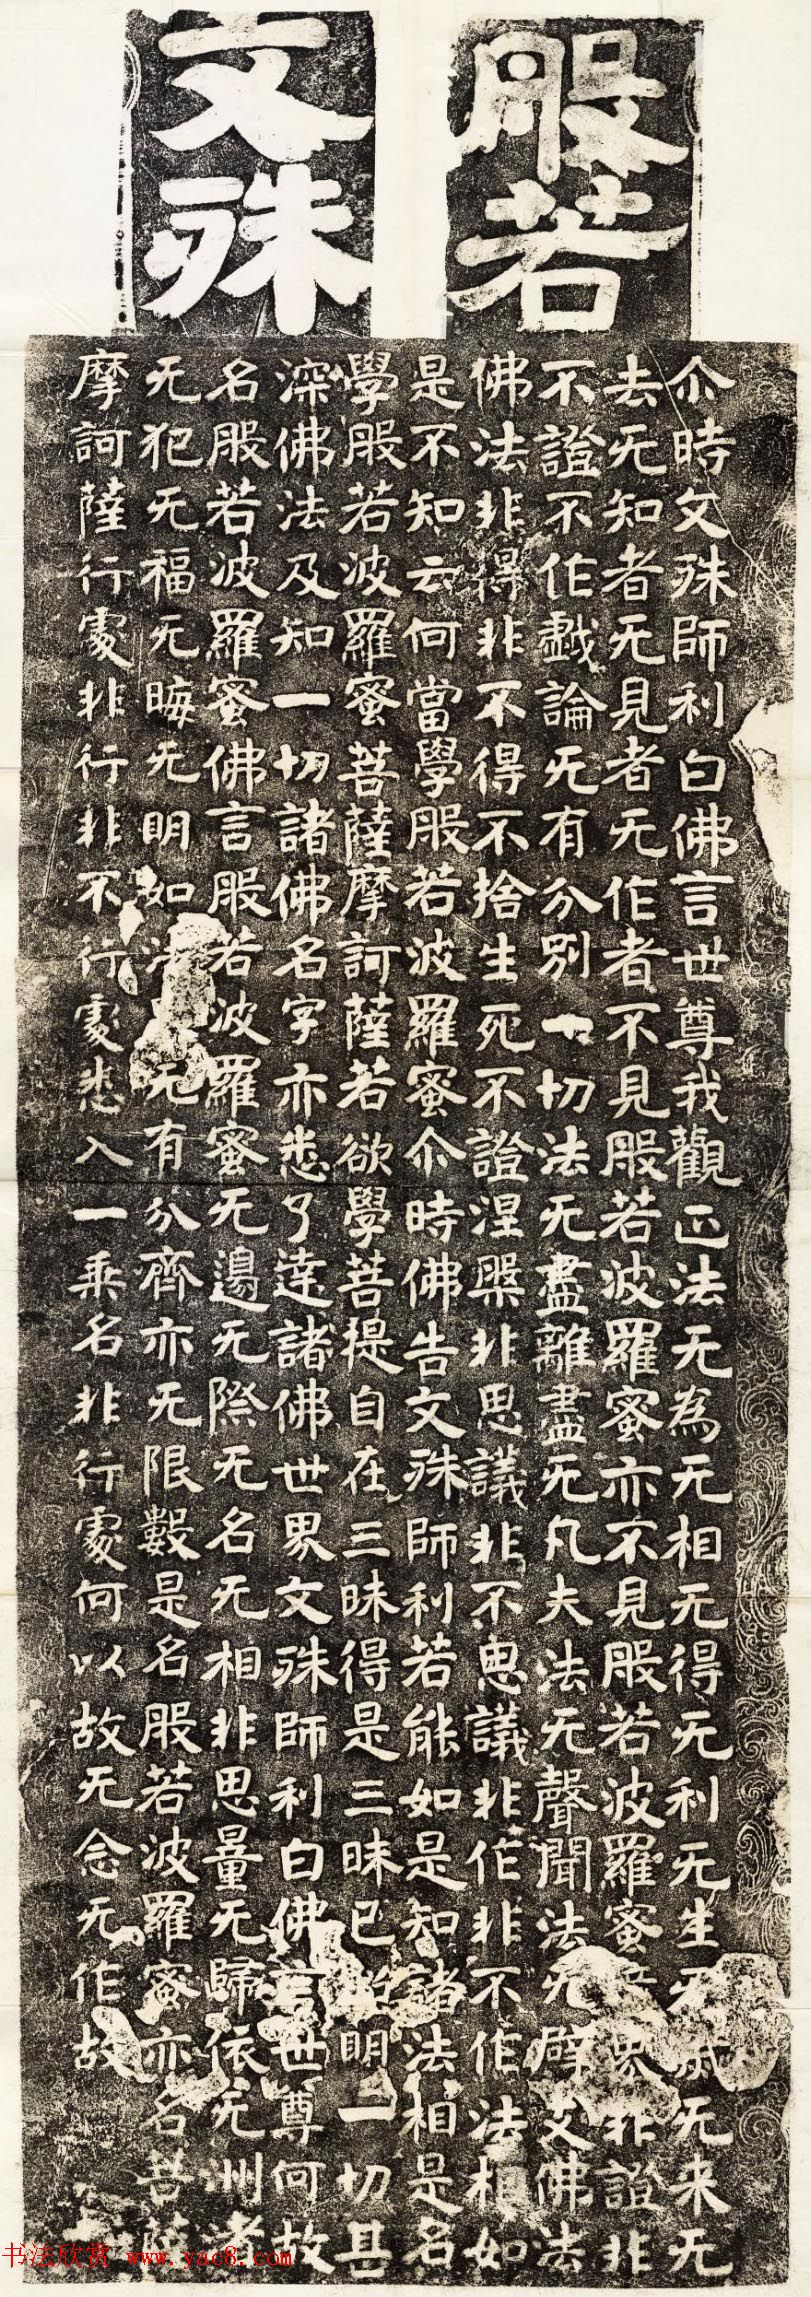 般若
文殊
尒時文殊師利白佛言世尊我觀正法无為无相无得无利无生无来无
去无知者无見者无作者不見般若波羅蜜亦不見般若波羅蜜界非證非
不證不作戯論无有分別一切法无盡離盡无凡夫法无聲聞法无辟支佛法
佛法非得非不得不捨生死不證涅槃非思議非不思議非作非不作法相如
是不知云何當學般若波羅蜜尒時佛告文殊師利若能如是知諸法相是名
學般若波羅蜜菩薩摩訶薩若欲學菩提自在三昧得是三昧已明一切甚
深佛法及知一切諸佛名字亦悉了達諸佛世界文殊師利白佛言世尊何故
名般若波羅蜜佛言般若波羅蜜无邊无際无名无相非思量无歸依无洲渚
无犯无福无晦无明如法无有分齊亦无限數是名般若波羅蜜亦名菩
摩訶薩行處非行非不行處悉入一乘名非行處何以故无念无作故
书法欣赏 www.yac8.com